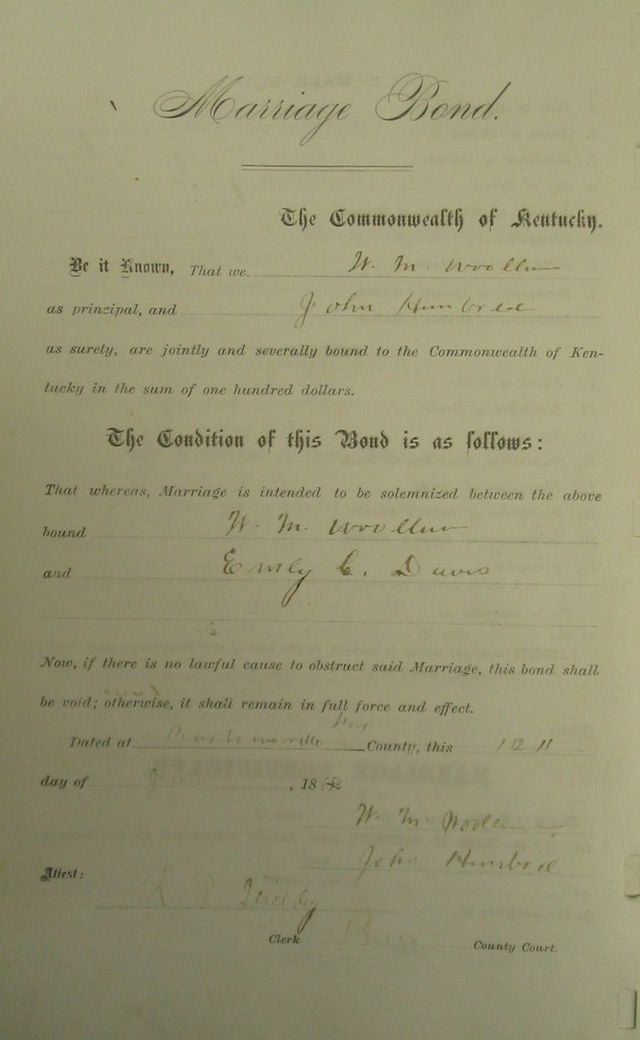 Marriage Bond.
The Commonwealth of Kentucky.
Be it Known, That we, W. M. Woollum
as principal, and John Hembree
as surety, are jointly and severally bound to the Commonwealth of Ken-
tucky in the sum of one hundred dollars.
The Condition of this Bond is as follows:
That whereas, Marriage is intended to be solemnized between the above
bound W. M. Woollum
and Emly C. Davis
Now, if there is no lawful cause to obstruct said Marriage, this bond shall
be void; otherwise, it shall remain in full force and effect.
Knox
Dated at Barbourville County, this
day of , 18
W. M.
John Hembree
Attest:
Clerk County Court.